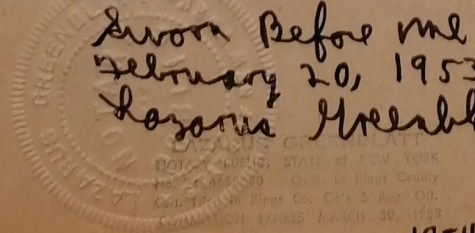 Sworn Before me
February 20, 195
Lazarus Greenbl
LAZARUS GREENBLATT
NOTARY PUBLIC, STATE of NEW YORK
No. Qual. in Kings County
Cert. filed in Kings Co. Clk's & Reg. Off.
COMMISSION EXPIRES MARCH 30, 1952